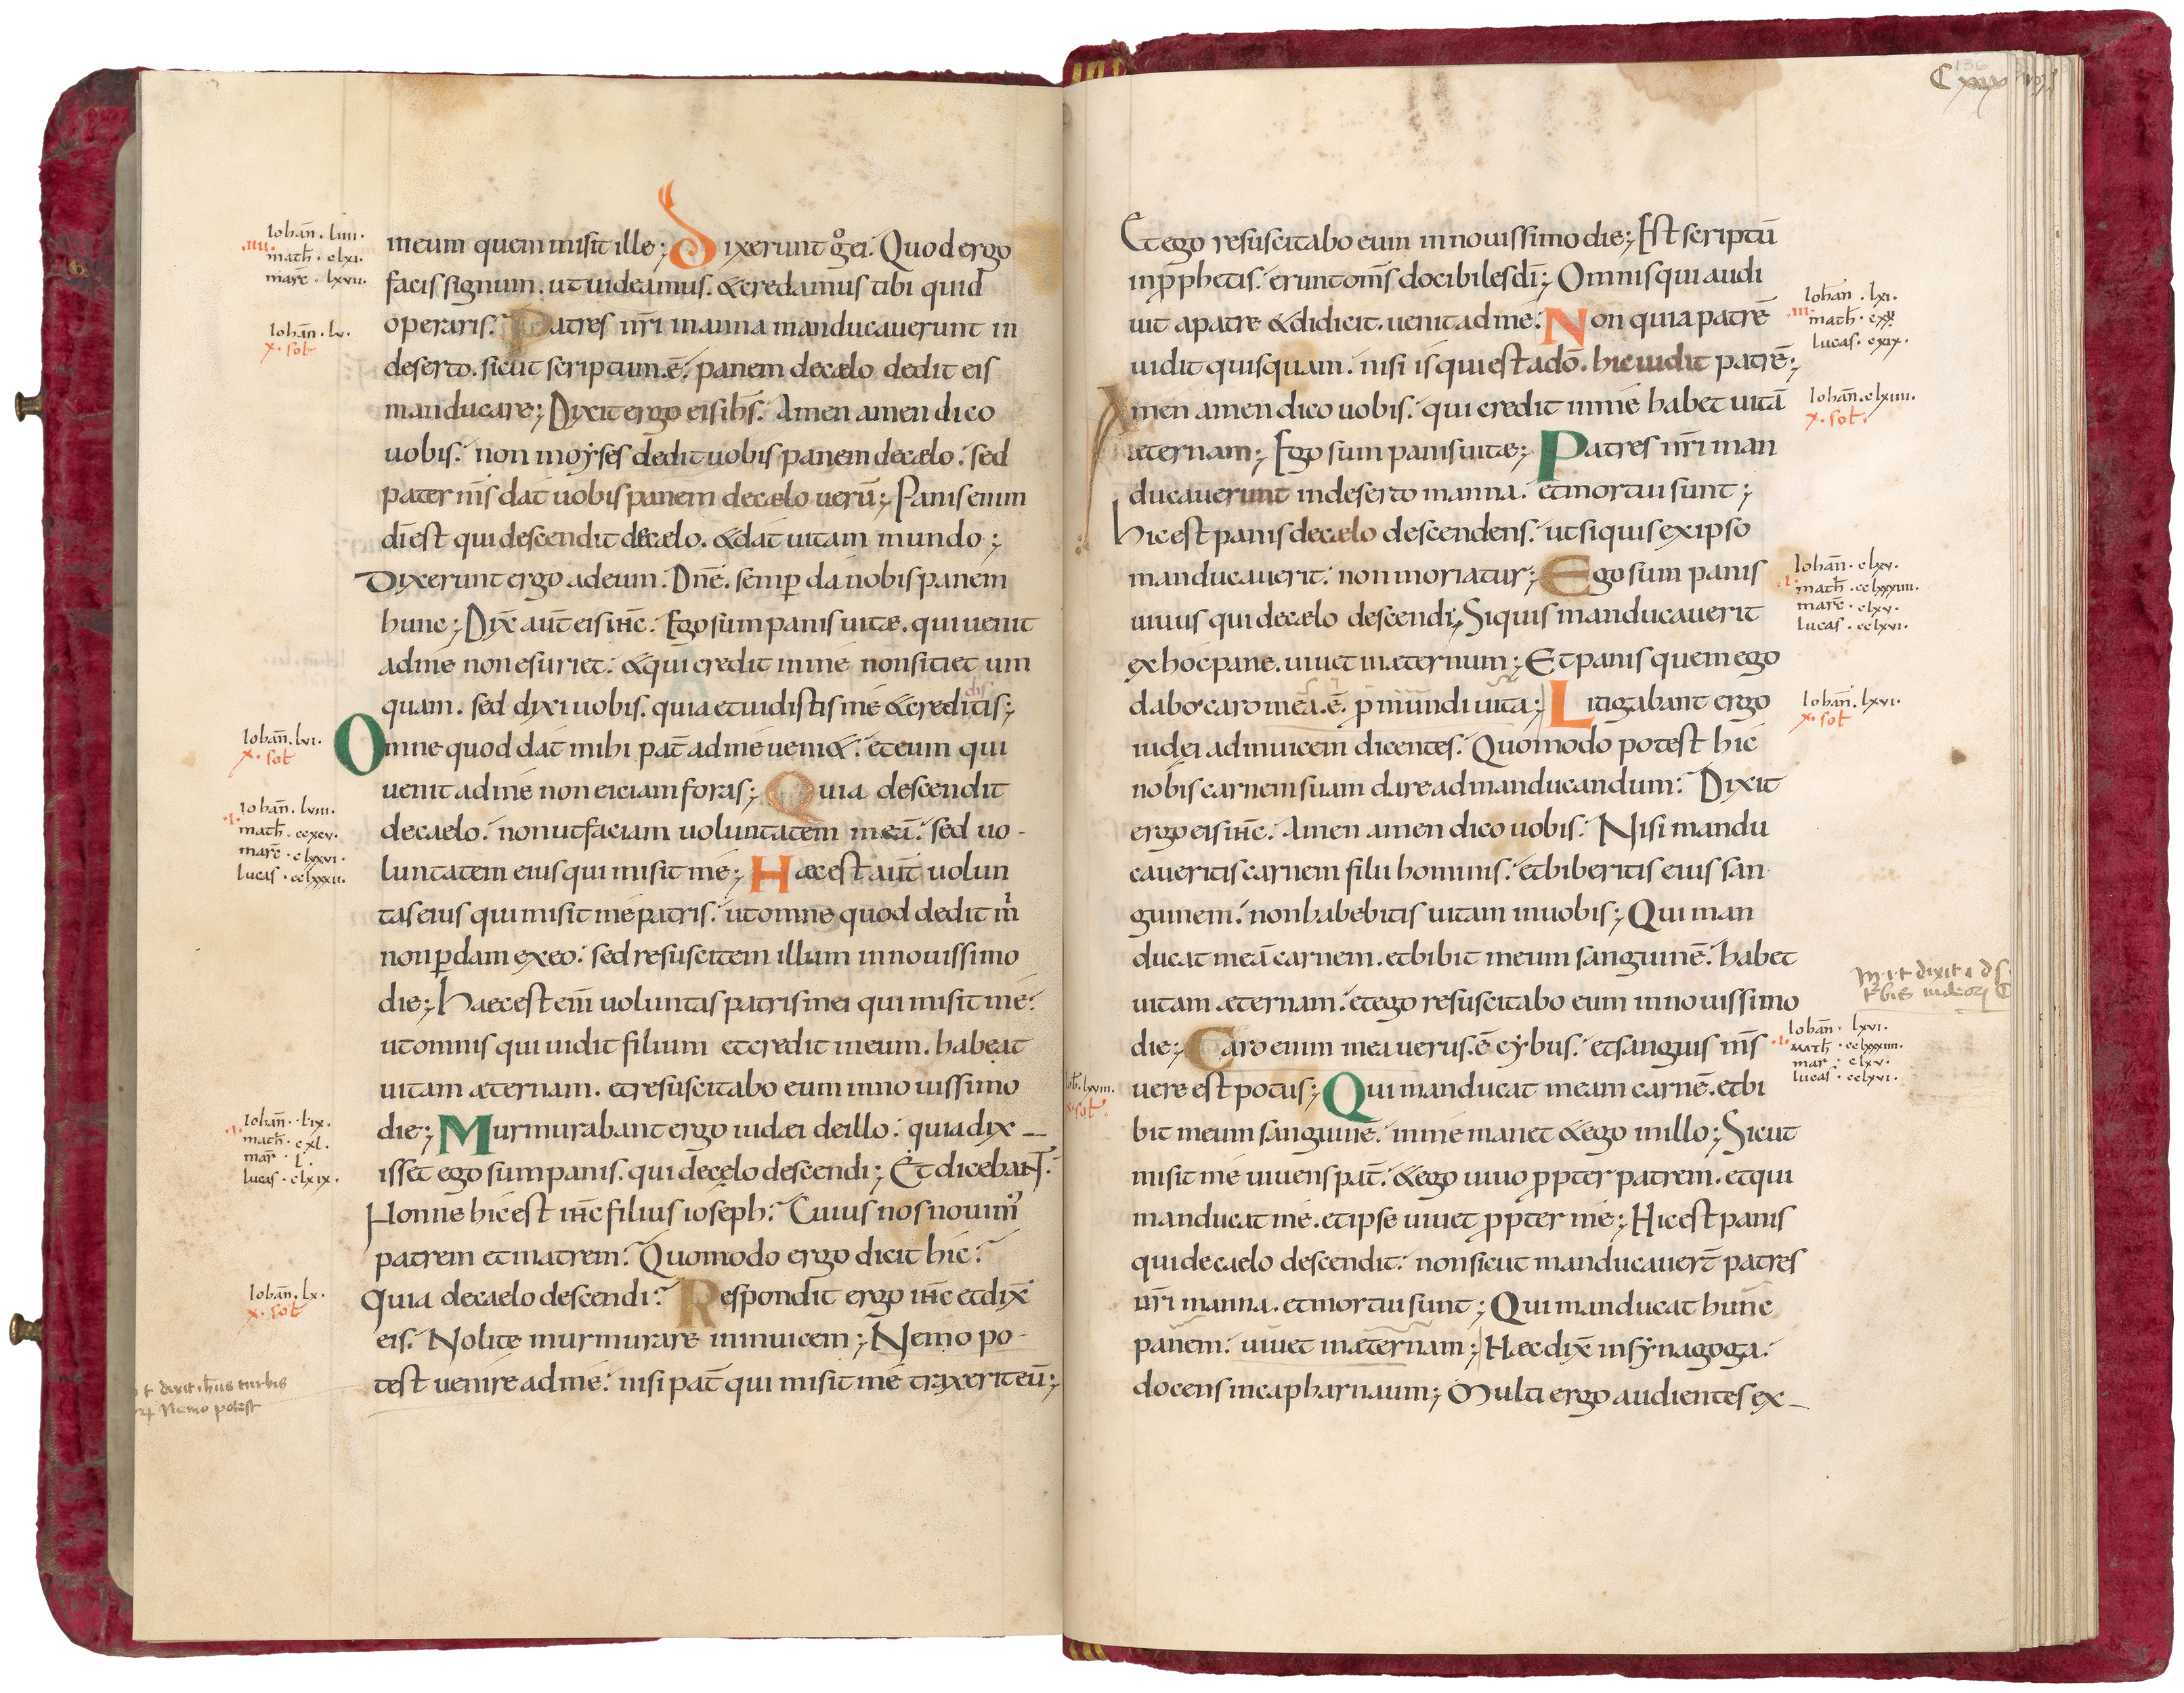 Iohañ . liiii .
.iiii. math . clxi .
marc̄ . lxvii .
Iohañ . lv .
x . sol
Iohañ . lvi .
x . sol
Iohañ . lviii .
.i. math . ccxcv .
marc̄ . clxxvi .
lucas . cclxxxii .
Iohañ . lix .
.i. math . cxl .
mar̄ . l .
lucas . clxix .
Iohañ . lx .
x . sol
t dixit ihus turbis
Nemo potest
meum quem misit ille; Dixerunt g̊ ei. Quod ergo
facis signum. ut uideamus. & credamus tibi quid
operaris. Patres nr̄i manna manducauerunt in
deserto. sicut scriptum ē. panem de cælo dedit eis
manducare; Dixit ergo eis ihs̄. Amen amen dico
uobis. non moẏses dedit uobis panem de cælo. sed
pater ms̄ dat uobis panem de cælo uerū; Panis enim
dī est qui descendit de cælo. & dat uitam mundo;
Dixerunt ergo ad eum. Dn̄e. semp̄ da nobis panem
hunc; Dix̄ aut̄ eis ih̄c. Ego sum panis uitæ. qui uenit
ad me non esuriet. & qui credit in me non sitiet um
quam. sed dixi uobis. quia et uidistis me & creditis;
Omne quod dat mihi pat̄ ad me ueni&. et eum qui
uenit ad me non eiciam foras; Quia descendit
de caelo. non ut faciam uoluntatem meā. sed uo-
luntatem eius qui misit me; Haec est aut̄ uolun
tas eius qui misit me patris. ut omne quod dedit m̄
non p̄dam ex eo. sed resuscitem illum in nouissimo
die; Haec est eni̅ uoluntas patris mei qui misit me.
ut omnis qui uidit filium et credit in eum. habeat
uitam æternam. et resuscitabo eum in no uissimo
die; Murmurabant ergo iudæi de illo. quia dix_
isset ego sum panis. qui de cęlo descendi; Et dicebant.
Nonne hic est ih̄c filius ioseph. Cuius nos nouim'
patrem et matrem. Quomodo ergo dicit hic.
Quia de caelo descendi. Respondit ergo ih̄c et dix̄
eis. Nolite murmurare in inuicem; Nemo po-
test uenire ad me. nisi pat̄ qui misit me traxerit eū;
136
Et ego resuscitabo eum in nouissimo die; Est scriptū
in p̄phetis. erunt om̄s docibiles dī; Omnis qui audi
uit a patre & didicit. uenit ad me. Non quia patrē
uidit quisquam. nisi is qui est a dō. hic uidit patrē;
Amen amen dico uobis. qui credit in me habet uitā
æternam; Ego sum panis uitæ; Patres nr̄i man
ducauerunt in deserto manna. et mortui sunt;
Hic est panis de cælo descendens. ut si quis ex ipso
manducauerit. non moriatur; Ego sum panis
uiuus qui de cælo descendi; Si quis manducauerit
ex hoc pane. uiuet in æternum; Et panis quem ego
dabo. caro mea. ē. p̄ mundi uita; Litigabant ergo
iudei ad inuicem dicentes. Quomodo potest hic
nobis carnem suam dare ad manducandum. Dixit
ergo eis ih̄c. Amen amen dico uobis. Nisi mandu
caueritis carnem filii hominis. et biberitis eius san
guinem. non habebitis uitam in uobis; Qui man
ducat meā carnem. et bibit meum sanguinē. habet
uitam æternam. et ego resuscitabo eum in no uissimo
die; Caro enim mea uerus. ē cẏbus. et sanguis ms̄
uere est potus; Qui manducat meam carnē. et bi
bit meum sanguinē. in me manet & ego in illo; Sicut
misit me uiuens pat̄. & ego uiuo p̄pter patrem. et qui
manducat me. et ipse uiuet p̄pter me; Hic est panis
qui de caelo descendit. non sicut manducauer̄ patres
ur̄i manna. et mortui sunt; Qui manducat hunc
panem. uiuet in æternam; Hæc dix̄ in sẏnagoga.
docens in capharnaum; Multi ergo audientes ex_
Iohañ . lxi .
.iii. math .
lucas . cxix .
Iohañ . clxiiii .
x . sol
Iohañ . clxv .
.i. math . cclxxxiiii .
marc̄ . clxv .
lucas . cclxvi .
Iohañ . lxvi .
x . sol
Iohañ . lxvi .
.i. math . cclxxxiiii .
mar . clxv .
lucas . cclxvi .
Ioh̄ . lxviii .
x . sol